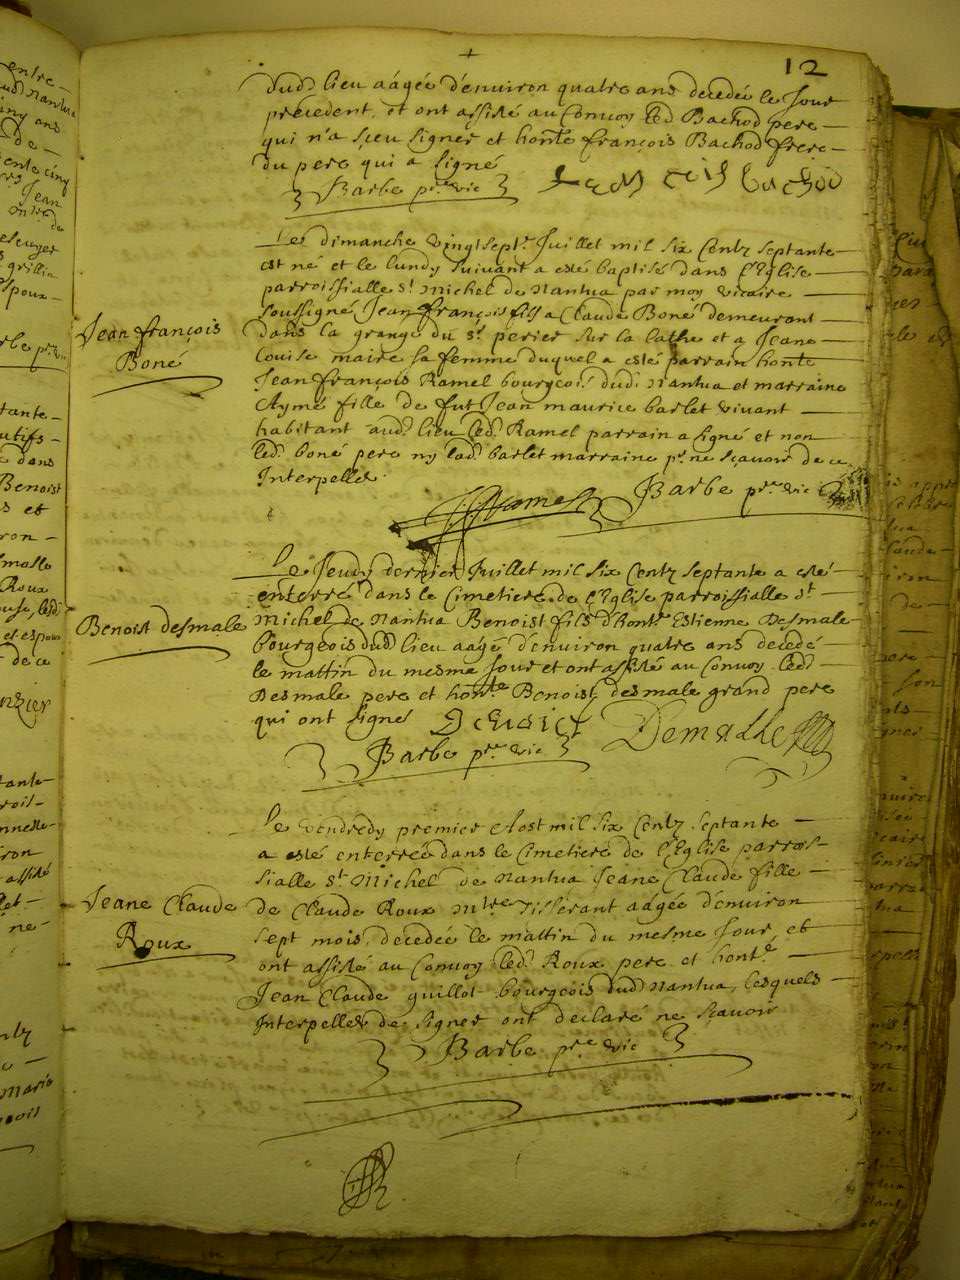 12
dud lieu aagée d'environ quatre ans decedée le Jour
precedent, et ont assisté au Convoy led Bachod pere
qui n'a sceu signer et honte françois Bachod frere
du pere qui a signé
Barbe pre vic françois bachod
Le dimanche vingtsept Juillet mil six Centz septante
est né et le lundy suivant a esté baptisé dans l'Eglise
parroissialle St Michel de Nantua par moy vicaire
soussigné Jean françois fils a Claude Boné demeurant
dans la grange du sr perier sur la lathe et a Jeane
Louise maire sa femme duquel a esté parrain honte
Jean françois Ramel bourgeois dud Nantua et marraine
Aymé fille de fut Jean maurice barlet vivant
habitant aud lieu led Ramel parrain a signé et non
led boné pere ny lad barlet marraine pr ne sçavoir de ce
Interpellés
Jean françois
Boné
Ramel Barbe pre vic
Le Jeudy dernier Juillet mil six Centz septante a esté
enterré dans le Cimetiere de l'Eglise parroissialle St
Michel de Nantua Benoist fils d'honte Estienne Desmale
bourgeois dud lieu aagé d'environ quatre ans decedé
le mattin du mesme Jour et ont assisté au Convoy led
Desmale pere et honte Benoist desmale grand pere
qui ont signé
Benoist desmale
Demalle
Barbe pre vic
Le vendredy premier Aost mil six Centz septante
a esté enterrée dans le Cimetiere de l'Eglise parrois-
sialle St Michel de Nantua Jeane Claude fille
de Claude Roux mtre tisserant aagée d'environ
sept mois, decedée le mattin du mesme Jour, et
ont assisté au Convoy led Roux pere et honte
Jean Claude guillot bourgeois dud Nantua, lesquels
Interpellés de signer ont declaré ne sçavoir
Jeane Claude
Roux
Barbe pre vic